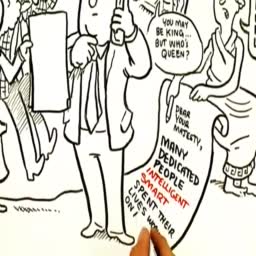 YOU MAY
BE KING...
BUT WHO'S
QUEEN?
DEAR
YOUR
MAJESTY,
MANY
DEDICATED
PEOPLE
INTELLIGENT
SMART
SPENT THEIR
LIVES
ON!